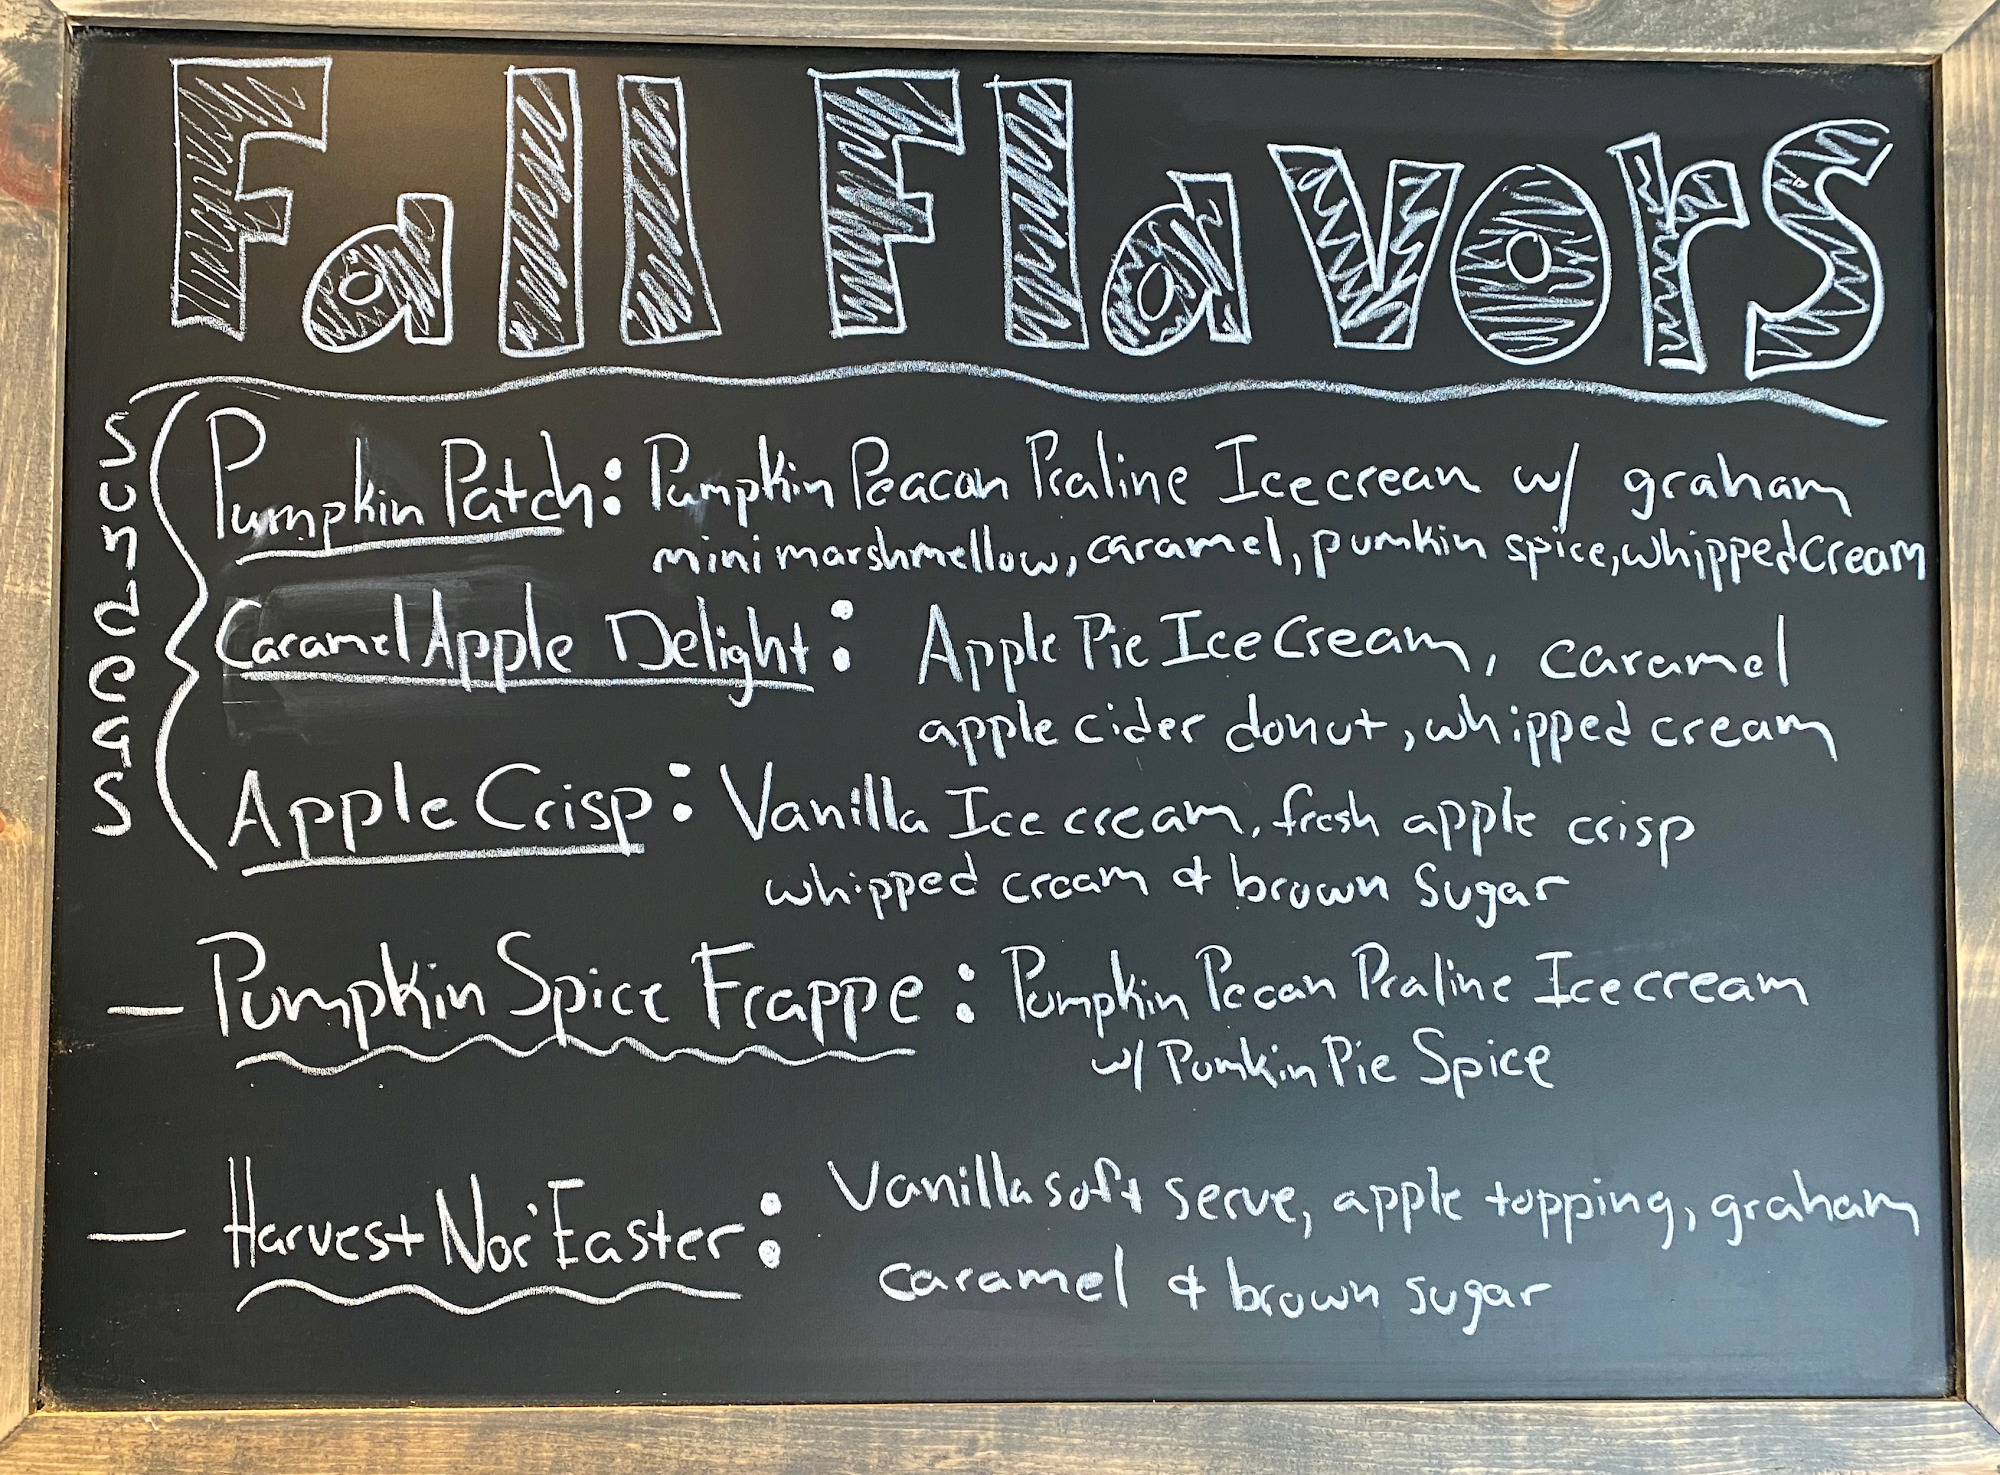 Fall Flavors
Sundaes
Pumpkin Patch: Pumpkin Peacan Praline Ice crean w/ graham
mini marshmellow, caramel, pumkin spice, whipped cream
Caramel Apple Delight: Apple Pie Ice Cream, caramel
apple cider donut, whipped cream
Apple Crisp: Vanilla Ice cream, fresh apple crisp
whipped cream & brown sugar
- Pumpkin Spice Frappe: Pumpkin Pecan Praline Ice cream
w/ Pumkin Pie Spice
- Harvest Nor'Easter: Vanilla soft serve, apple topping, graham
caramel & brown sugar